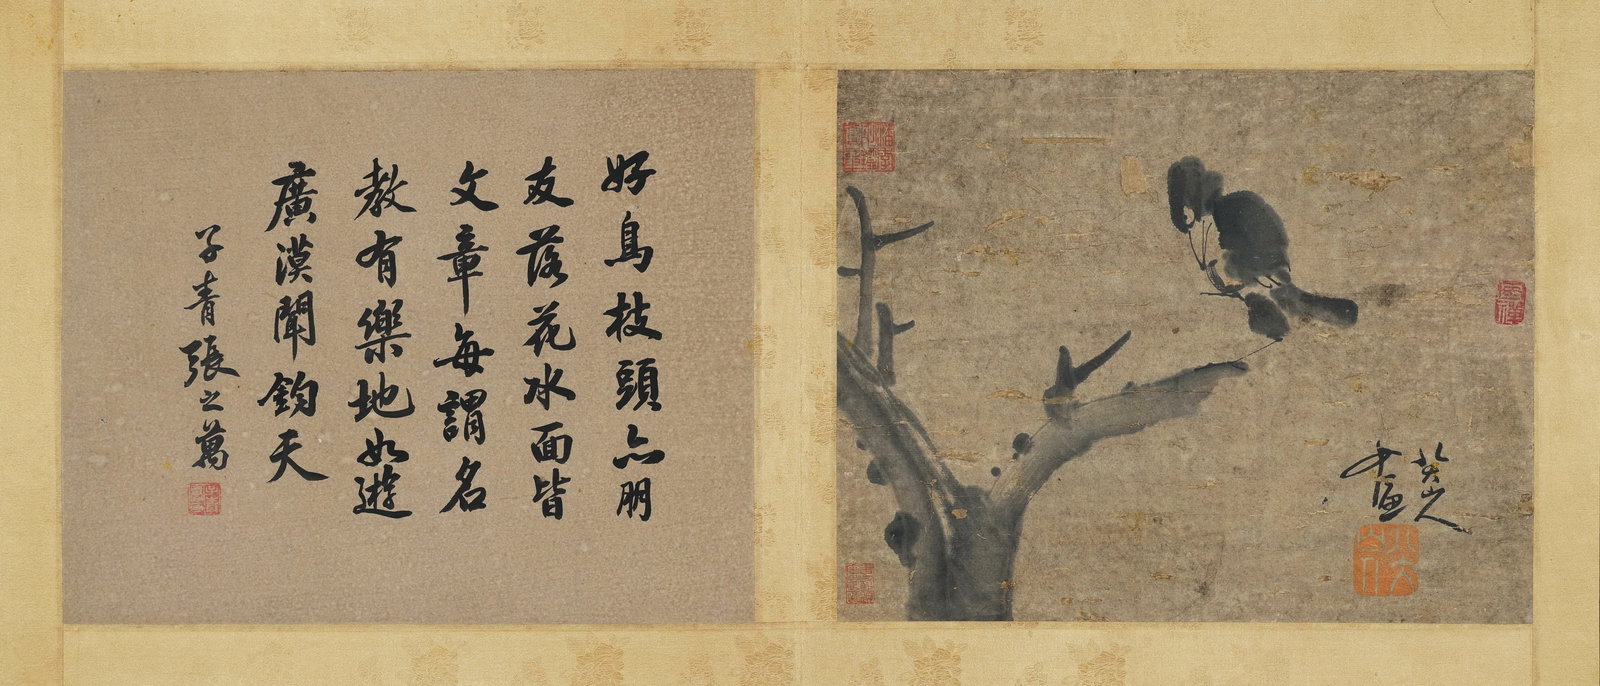 好鳥枝頭亦朋
友落花水面皆
文章每謂名
教有樂地如遊
廣漠聞鈞天
子青張之萬
八大山人
畫